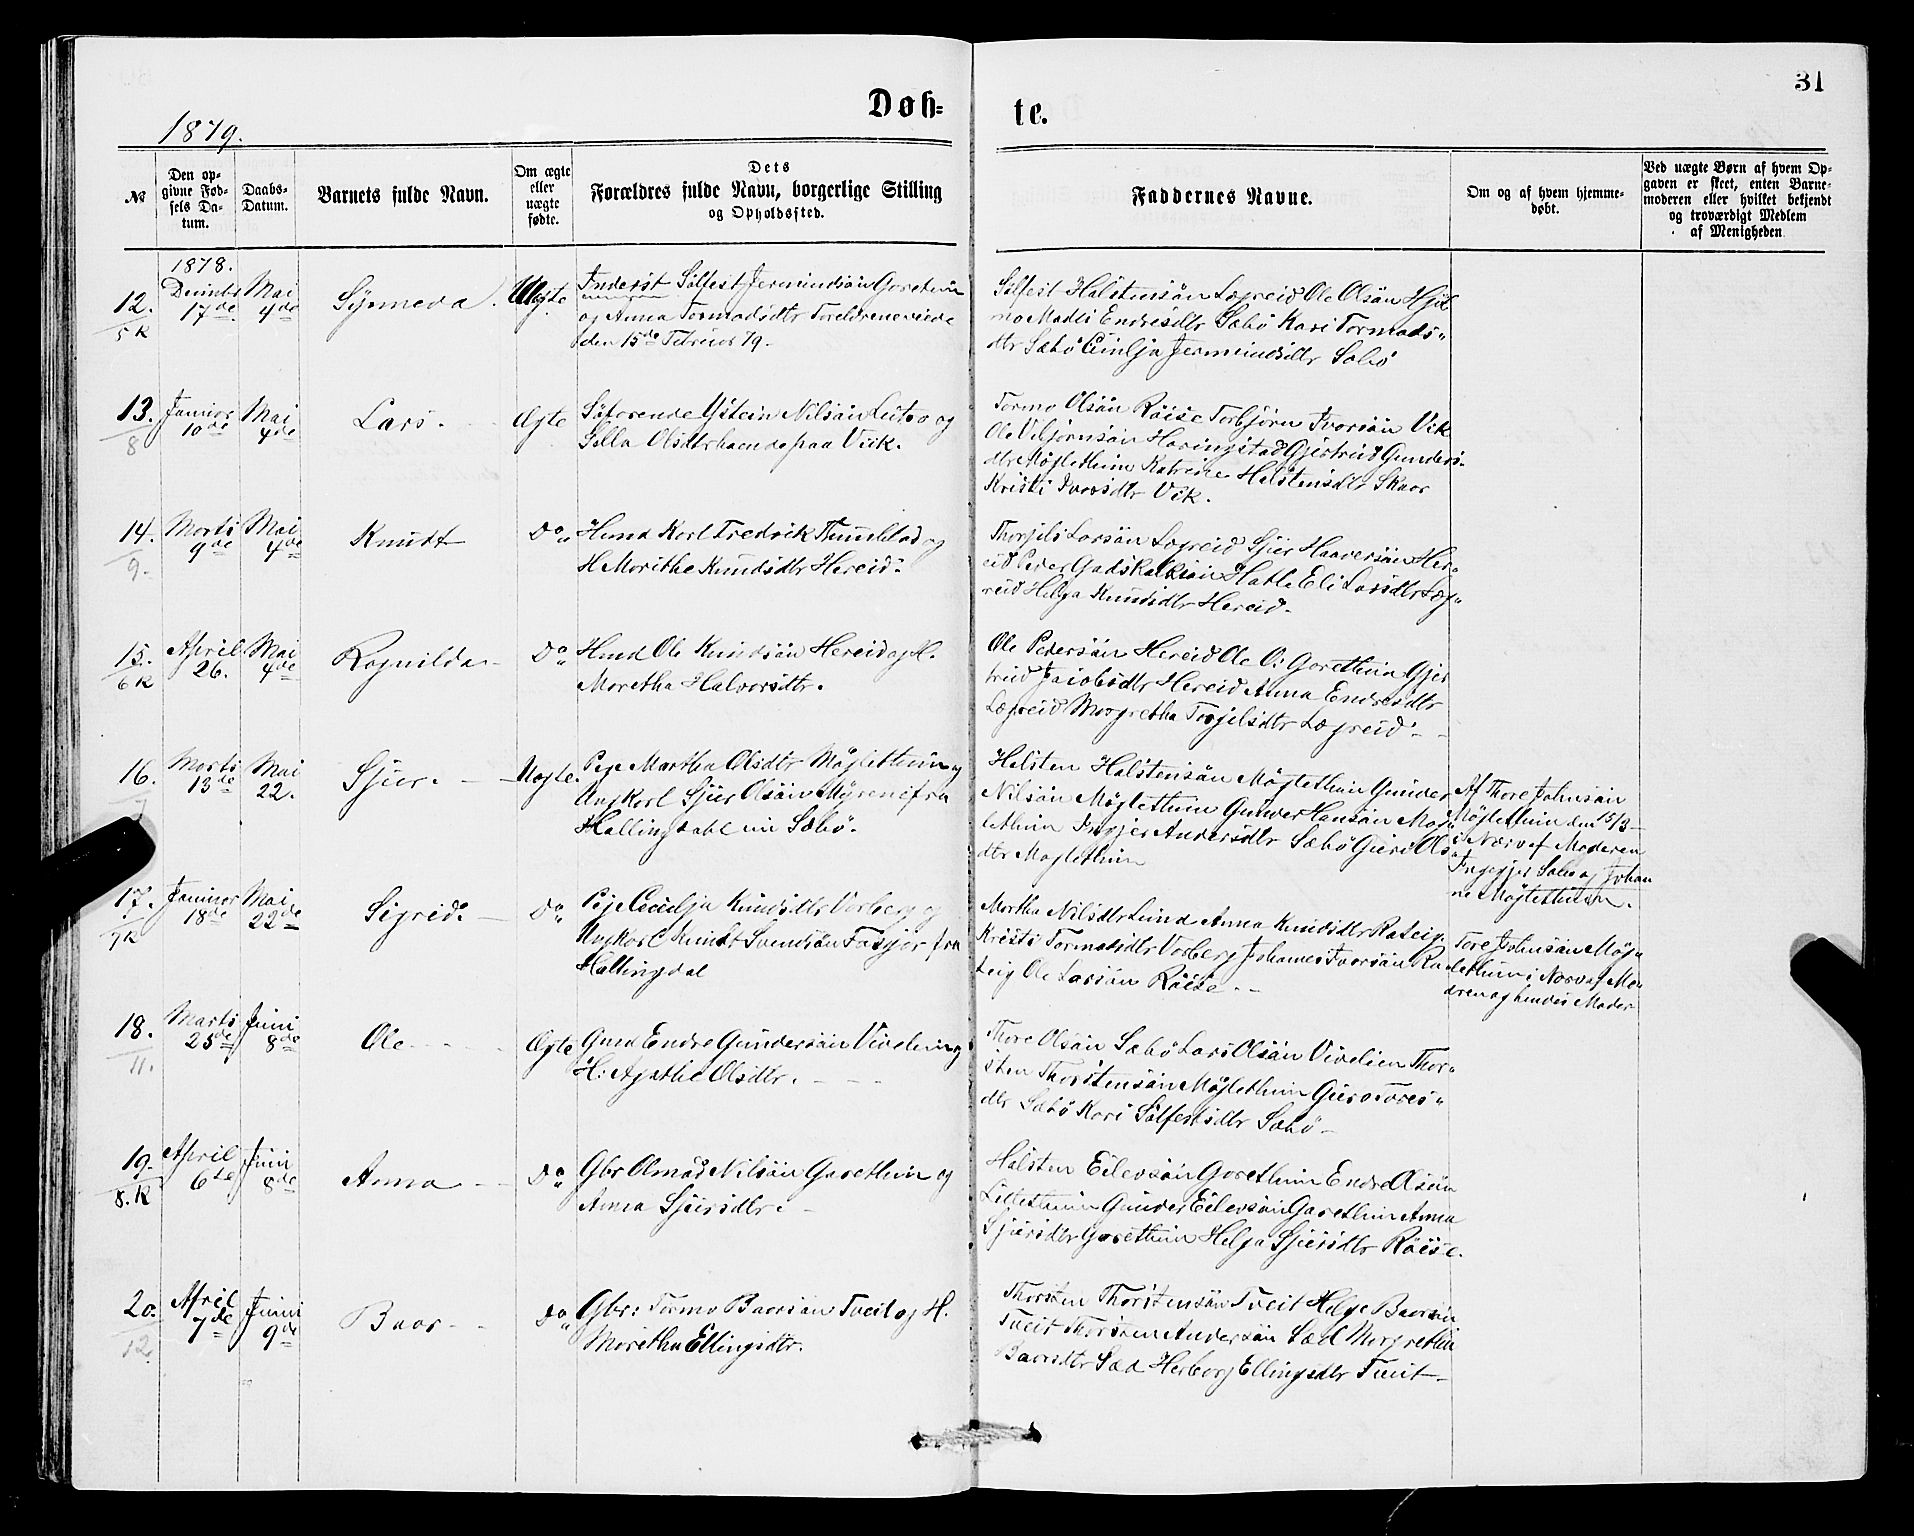 31
Døb-
te.
1879.
№
Den op-
givne Fød-
sels Da-
tum.
Daabs-
Datum.
Barnets fulde Navn.
Om ægte
eller
uægte
fødte.
Dets
Forældres fulde Navn, borgerlige Stilling
og Opholdssted.
Faddernes Navne.
Om og af hvem hjemme-
døbt.
Ved uægte Børn af hvem Op-
gaven er skeet, enten Barne-
moderen eller hvilket bekjendt
og troværdigt Medlem
af Menigheden
1878.
12.
5 K
17de
Mai
4de
Synneva.
Sølfest
og Anna Tormodsdtr
den 15de Februar 79.
Sølfest Halstensön Legreid Ole Olsön
Endresdtr Sæbö Kari Tormods-
dtr Sæbö
13.
8
Januar
10de
Mai
4de
Lars.
Ægte
Ystein Nilsön og
Silla Olsdtr paa Vik.
Tormo Olsön Röise Torbjörn Ivorsön Vik
Gunders-
dtr Möglethun Katrine Halstensdtr Skaar
Kristi Ivorsdtr Vik.
14.
9.
Marts
9de
Mai
4de
Knudt
Do
Karl Fredrik og
H Marithe Knudsdtr Hereid.
Thorjils Larsön Legreid Sjur Haaversön Her-
eid Peder Hatle Eli Larsdtr Leg-
reid Helga Knudsdtr Hereid.
15.
6 K
April
26.
Mai
4de
Ragnilda
Do
Ole Knudsön Hereid og H.
Moretha Halvorsdtr.
Ole Pedersön Hereid Ole O: Garethun Gjer
trud Jacobsdtr Hereid Anna Endresdtr
Legreid Margretha Torjelsdtr Legreid
16.
Marts
13de
Mai
22.
Sjur.
Uægte.
Pige Martha Olsdtr Möglethun og
Ungkarl Sjur Olsön Myrene fra
Hallingdal nu Sæbö.
Halsten Halstensön Möglethun Gunder
Nilsön Möglethun Gunder Hansön Mög-
lethun Ingjer Andersdtr Sæbö Guri Ols-
dtr Möglethun
Af Thore Johnsön
Möglethun den 15/3
i Nærv af Moderen
Ingejer Sæbö og Johan
ne Möglethun.
17.
7 K
Januar
18de
Mai
22de
Sigrid.
Do
Pige Cecilja Knudsdtr Varberg og
Ungkarl Knudt Svendsön fra
Hallingdal
Martha Nilsdtr Lund Anna Knudsdtr
Kristi Tormodsdtr Varberg Johannes Ivorsön
Ole Larsön Röise.
Tore Johnsön Mög-
lethun i Nærv af Mo-
deren og hendes Moder
18.
11.
Marts
25de
Juni
8de
Ole
Ægte
Endre Gundersön Vivelien og
H: Agathe Olsdtr.
Thore Olsön Sæbö Lars Olsön Vivelien Thor-
sten Thorstensön Möglethun Guro Tores-
dtr Sæbö Kari Sölfestsdtr Sæbö
19.
8. K
April
6te
Juni
8de
Anna
Do
Gbr Nilsön Garethun og
Anna Sjursdtr.
Halsten Eilevsön Garethun Endre Olsön
Lillethun Gunder Eilevsön Garethun Anna
Sjursdtr Garethun Helga Sjursdtr Röise.
20.
12.
April
7de
Juni
9de
Baar
Do
Gbr: Tormo Baarsön Tveit og H.
Maretha Ellingsdtr.
Thorsten Thorstensön Tveit Helge Baarsön
Tveit Thorsten Andersön Sæd Margretha
Baarsdtr Sæd Herborg Ellingsdtr Tveit